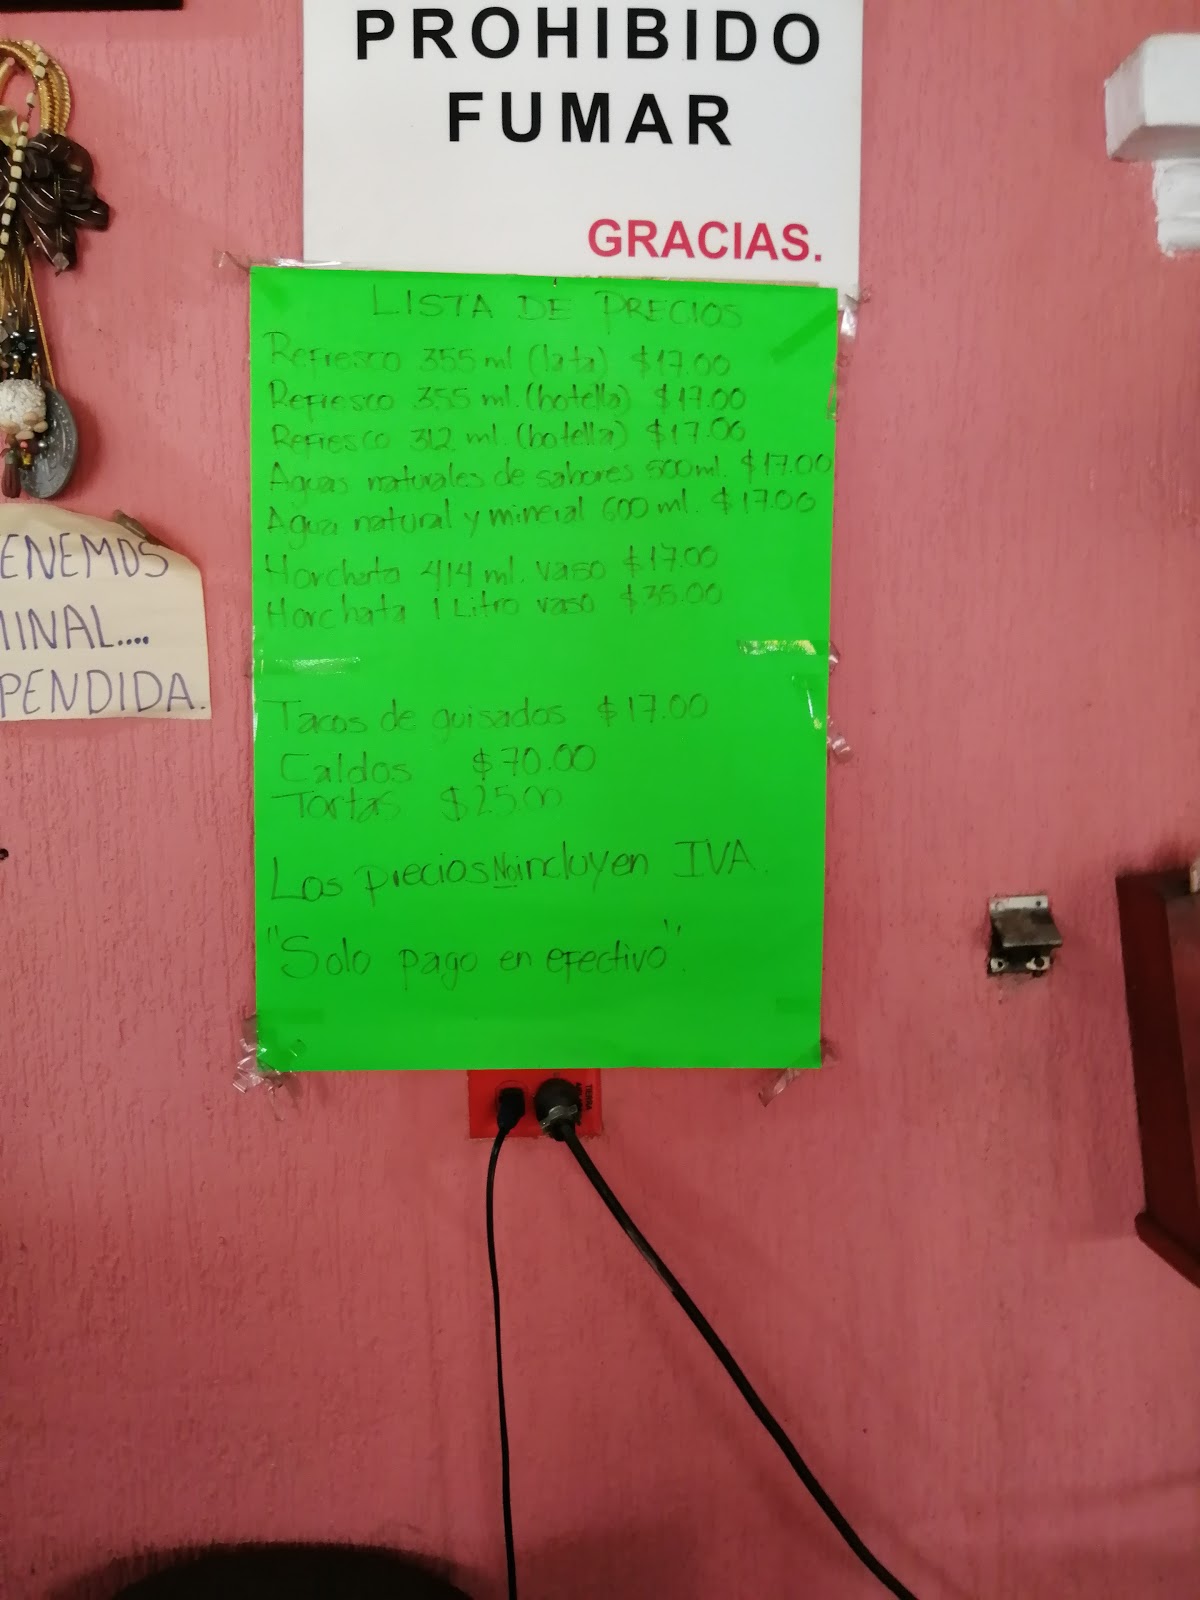 PROHIBIDO
FUMAR
GRACIAS.
LISTA DE PRECIOS
Refresco 355 ml (lata) $17.00
Refresco 355 ml. (botella) $17.00
Refresco 312 ml. (botella) $17.00
Aguas naturales de sabores 500ml. $17.00
Agua natural y mineral 600 ml. $17.00
Horchata 414 ml. vaso $17.00
Horchata 1 Litro vaso $35.00
Tacos de guisados $17.00
Caldos $70.00
Tortas $25.00
Los precios No incluyen IVA.
"Solo pago en efectivo".
ENEMOS
MINAL....
PENDIDA.